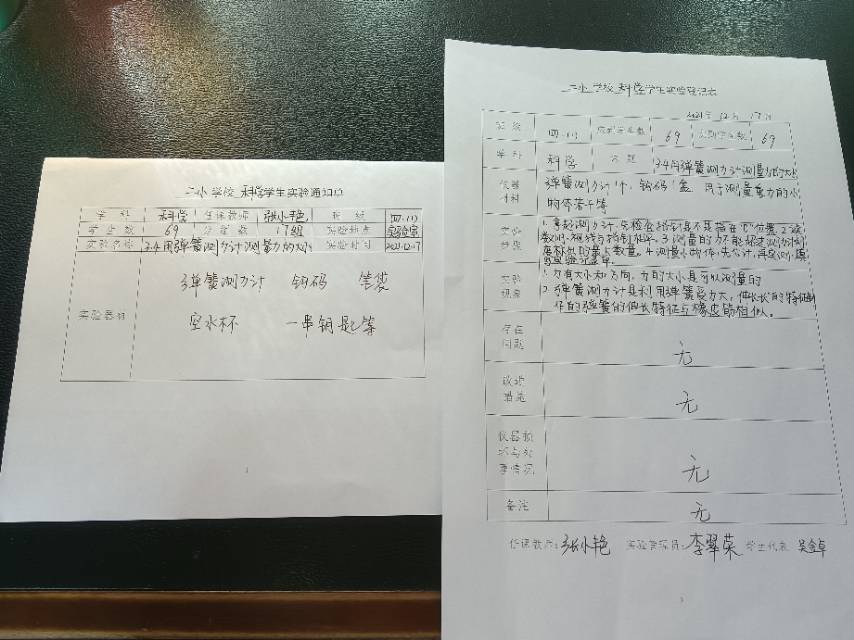 二小 学校 科学 学生实验通知单
学科 科学 任课教师 张小艳 班级 四.(1)
学生数 69 分组数 17组 实验地点 实验室
实验名称 3.4用弹簧测力计测量力的大小 实验时间 2021.12.7
弹簧测力计 钩码 笔袋
实验器材
空水杯 一串钥匙等
二小 学校 科学 学生实验登记表
2021年 12月 17日
班级 四.(1) 应到学生数 69 实到学生数 69
学科 科学 课题 3.4用弹簧测力计测量力的大小
仪器材料 弹簧测力计1个、钩码1盒、用于测量重力的小
物体若干等
实验步骤 1.拿起测力计,先检查指针是不是指在"0"位置 2.读
数时,视线与指针相平。3.测量的力不能超过测力计刻
度标出的最大数量。4.测量小物体,先估计,再实测,填
写实验记录单。
实验现象 1.力有大小和方向,力的大小是可以测量的
2.弹簧测力计是利用弹簧受力大,伸长长的特征制
作的弹簧的伸长特征与橡皮筋相似。
存在问题 无
改进措施 无
仪器损坏与处理情况 无
备注 无
任课教师:张小艳 实验管理员:李翠荣 学生代表 吴金卓